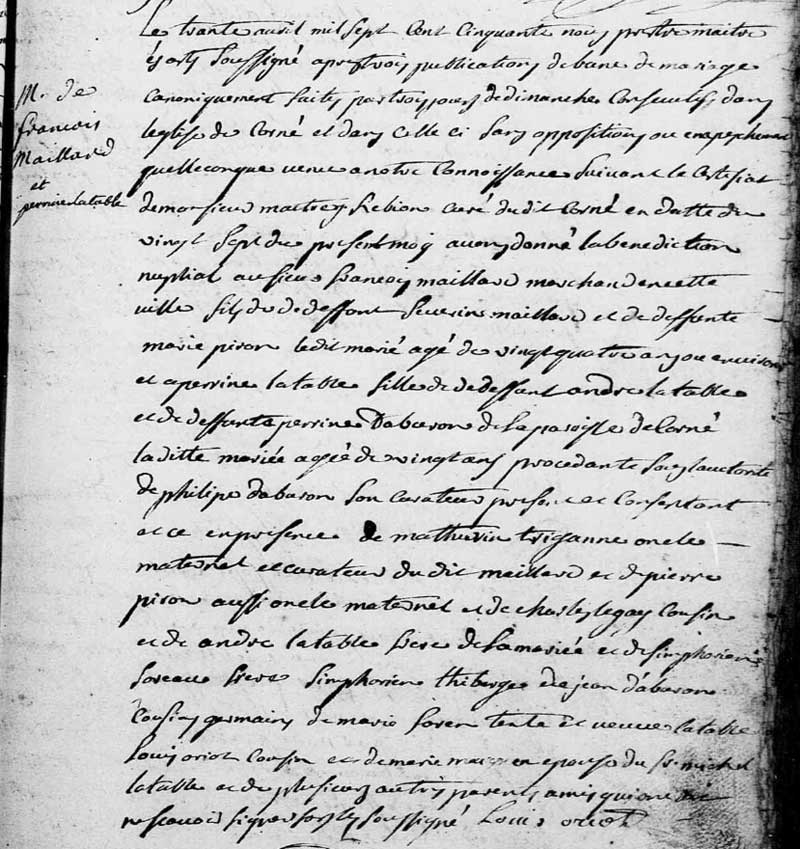 M. de
francois
Maillard
et
perrine latable
Le trante avril mil sept cent cinquante nous prestre maitre
és arts soussigné apres trois publications de bans de mariage
canoniquement faites par trois jours de dimanche consecutifs dans
leglise de Corné et dans celle ci sans oppositions ou enpechement
quelleconque venue a notre connoissance suivant le
de monsieur maitre curé du dit Corné en datte du
vingt sept du present mois avons donné la benediction
nuptial au sieur francois maillard marchand en cette
ville fils de deffont Severin maillard et de deffente
marie piron le dit marié agé de vingt quatre ans ou environ
et a perrine latable fille de deffant andre latable
et de deffante perrine Dabaron de la paroisse de Corné
la ditte mariée agée de vingt ans procedante sous lautorité
de philipe dabaron son curateur present et consentant
et ce en presence de mathurin triganne oncle
maternel et curateur du dit maillard et de pierre
piron aussi oncle maternel et de charles legay cousin
et de andre latable frere de la mariée et de simphorien
frere simphorien thiberge et de jean dabaron
cousins germains de marie tente et veuve latable
Louis oriot cousin et de marie en epouse du sr michel
latable et de plusieurs autres parents amis qui ont dit
ne scavoir signer fors les soussigné Louis oriot